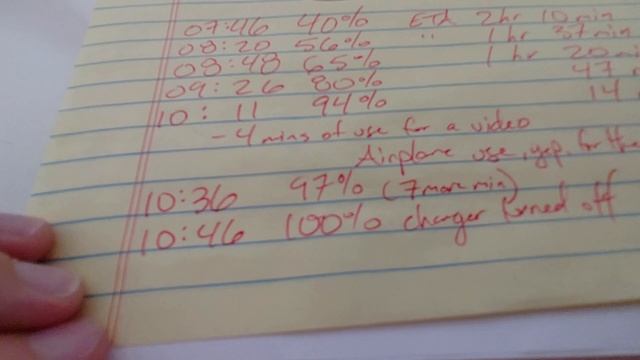 07:46 40% ETA 2hr 10min
08:20 56% " 1hr 37min
08:48 65% 1hr 20mi
09:26 80% 47
10:11 94% 14
- 4 mins of use for a video
Airplane use, yep. for the
10:36 97% (7 more min)
10:46 100% charger turned off